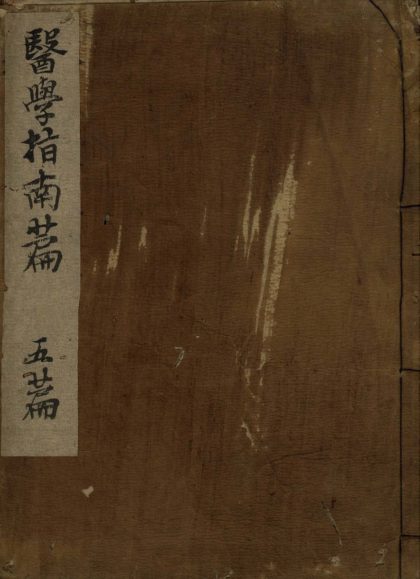 醫學指南篇 五篇